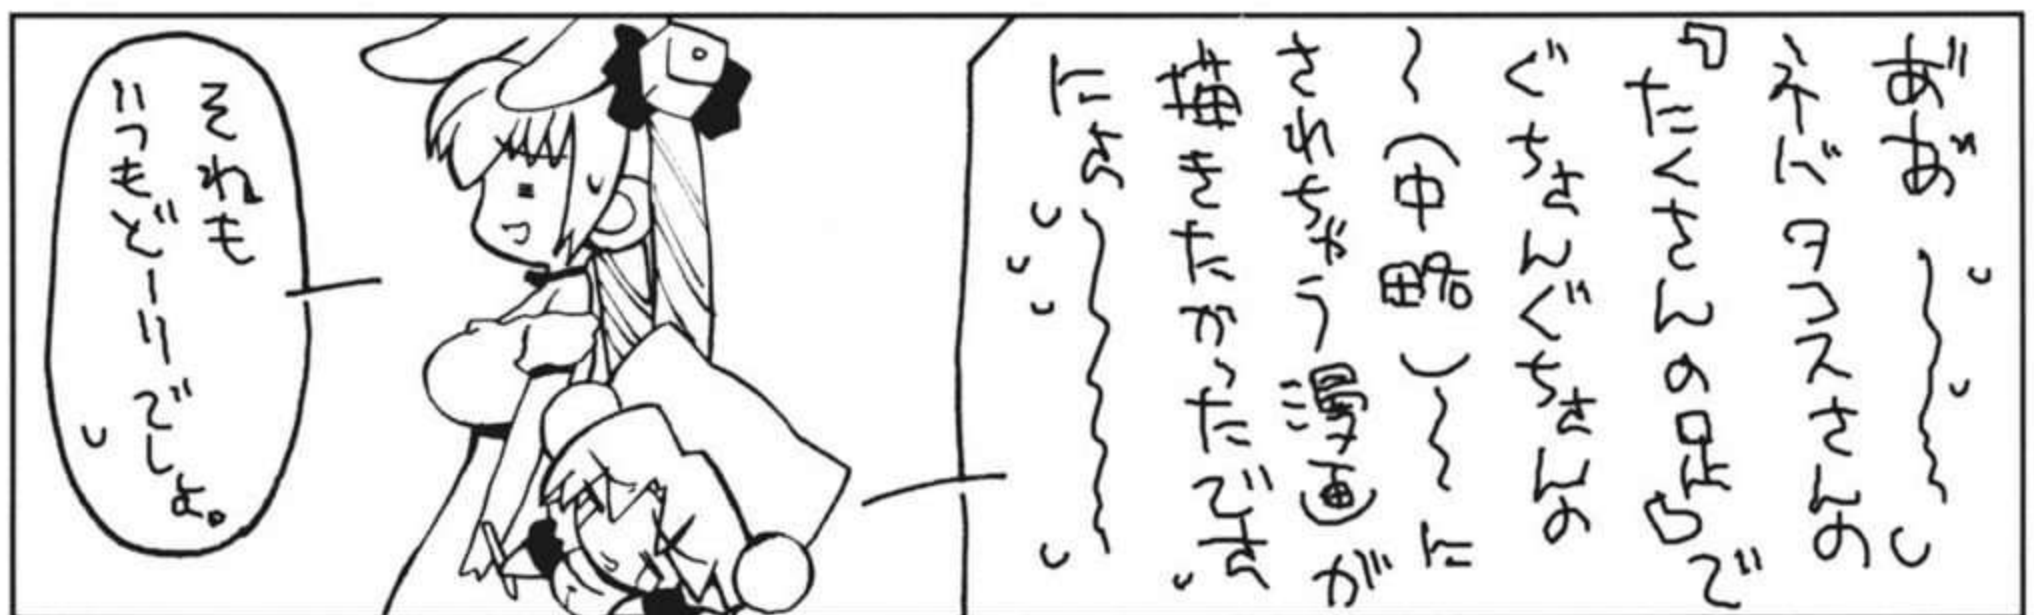 あ゛あ゛〜〜
ネバタコスさんの
『たくさんの足』で
ぐちゃんぐちゃんの
〜(中略)〜に
されちゃう漫画が
描きたかったです
にょ〜〜
それも
いつもどーりでしょ。